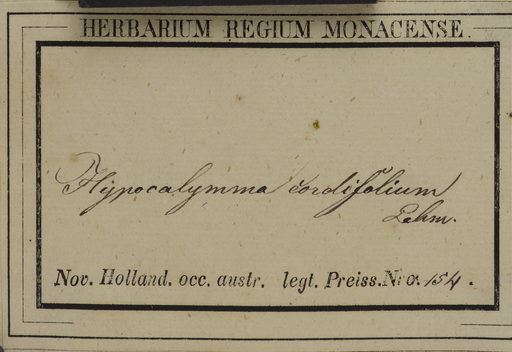 HERBARIUM REGIUM MONACENSE.
Hypocalymma cordifolium
Lehm.
Nov. Holland. occ. austr. legt. Preiss. Nro. 154.